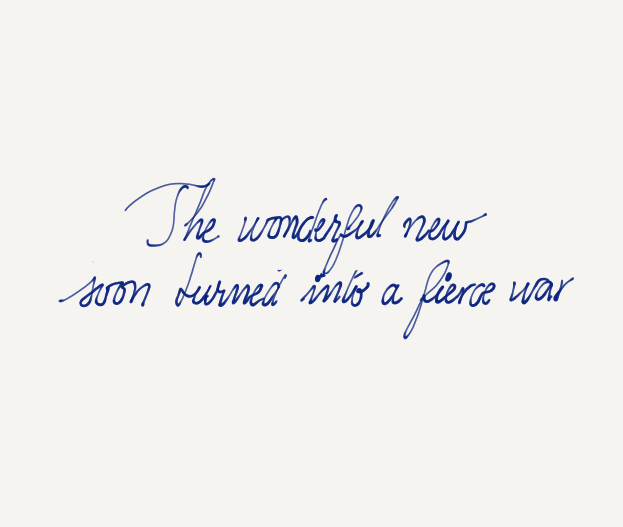 The wonderful new
soon turned into a fierce war